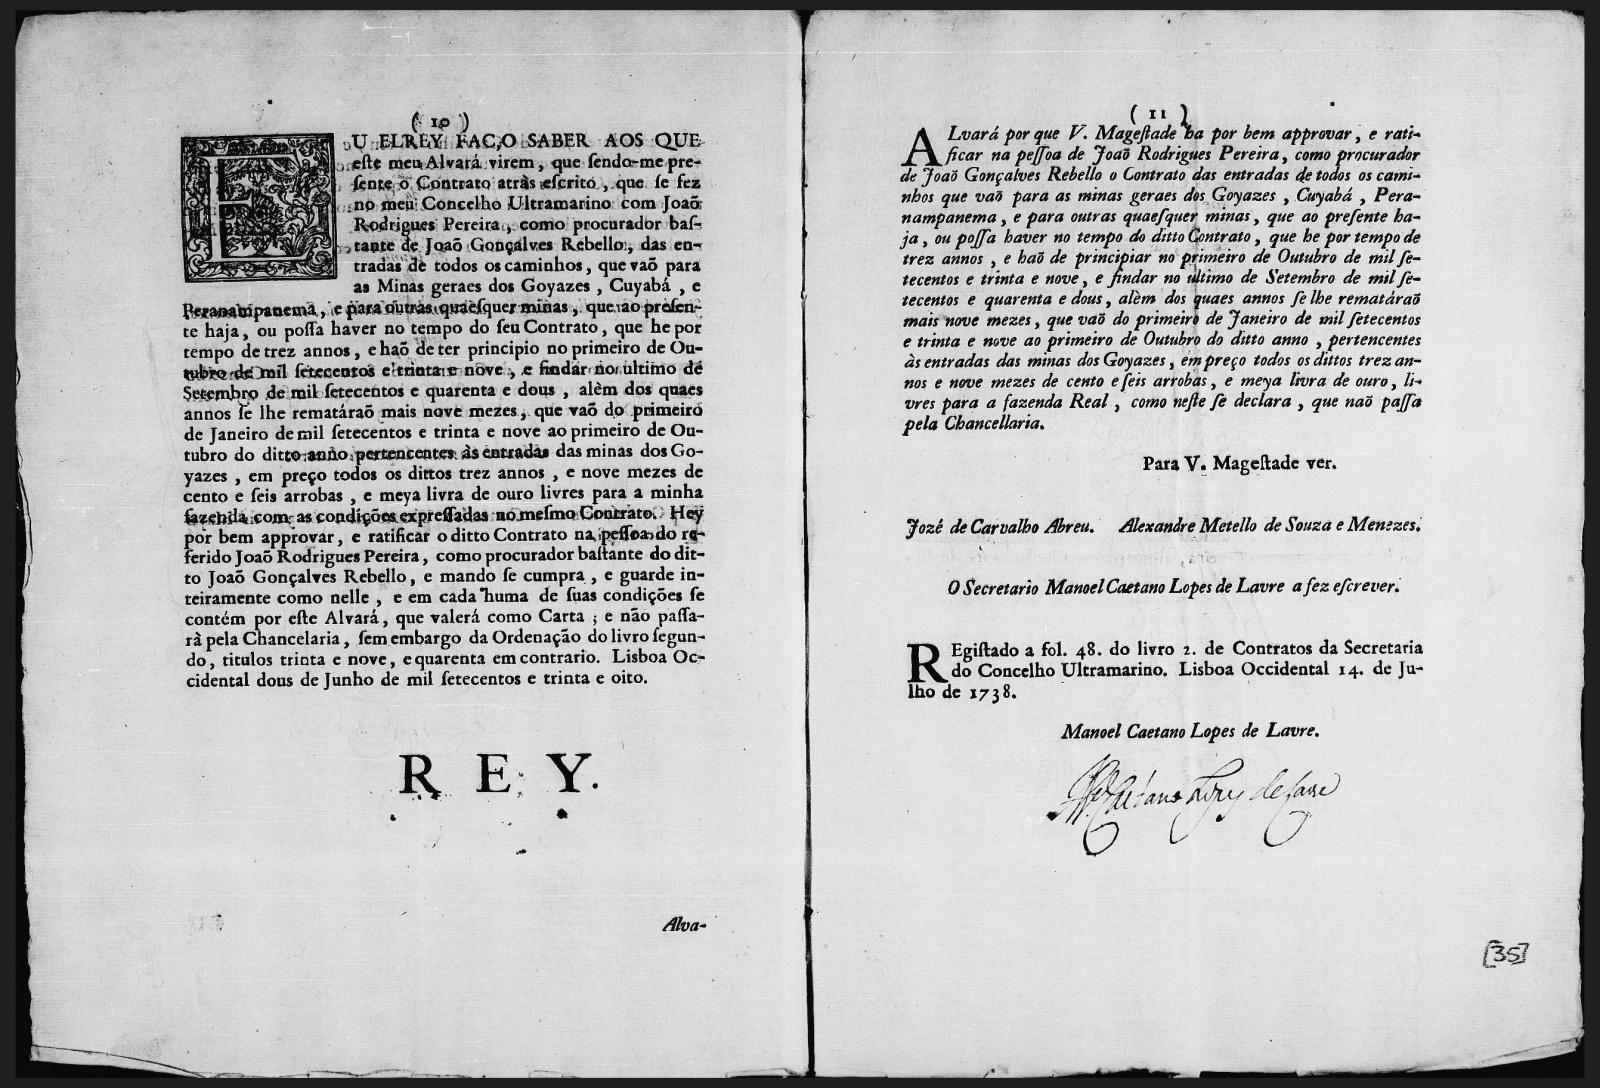 ( 10 )
EU ELREY FAC,O SABER AOS QUE
eſte meu Alvará virem, que ſendo-me pre-
ſente o Contrato atràs eſcrito, que ſe fez
no meu Concelho Ultramarino com Joaõ
Rodrigues Pereira, como procurador baſ-
tante de Joaõ Gonçalves Rebello, das en-
tradas de todos os caminhos, que vaõ para
as Minas geraes dos Goyazes, Cuyabá, e
Peranampanema, e para outras quaeſquer minas, que ao preſen-
te haja, ou poſſa haver no tempo do ſeu Contrato, que he por
tempo de trez annos, e haõ de ter principio no primeiro de Ou-
tubro de mil ſetecentos e trinta e nove, e findar no ultimo de
Setembro de mil ſetecentos e quarenta e dous, alèm dos quaes
annos ſe lhe rematáraõ mais nove mezes, que vaõ do primeiro
de Janeiro de mil ſetecentos e trinta e nove ao primeiro de Ou-
tubro do ditto anno pertencentes às entradas das minas dos Go-
yazes, em preço todos os dittos trez annos, e nove mezes de
cento e ſeis arrobas, e meya livra de ouro livres para a minha
fazenda com as condições expreſſadas no meſmo Contrato. Hey
por bem approvar, e ratificar o ditto Contrato na peſſoa do re-
ferido Joaõ Rodrigues Pereira, como procurador baſtante do dit-
to Joaõ Gonçalves Rebello, e mando ſe cumpra, e guarde in-
teiramente como nelle, e em cada huma de ſuas condições ſe
contém por eſte Alvará, que valerá como Carta; e não paſſa-
rà pela Chancelaria, ſem embargo da Ordenação do livro ſegun-
do, titulos trinta e nove, e quarenta em contrario. Lisboa Oc-
cidental dous de Junho de mil ſetecentos e trinta e oito.
REY.
Alva-
( 11 )
ALvará por que V. Mageſtade ha por bem approvar, e rati-
ficar na peſſoa de Joaõ Rodrigues Pereira, como procurador
de Joaõ Gonçalves Rebello o Contrato das entradas de todos os cami-
nhos que vaõ para as minas geraes dos Goyazes, Cuyabá, Pera-
nampanema, e para outras quaeſquer minas, que ao preſente ha-
ja, ou poſſa haver no tempo do ditto Contrato, que he por tempo de
trez annos, e haõ de principiar no primeiro de Outubro de mil ſe-
tecentos e trinta e nove, e findar no ultimo de Setembro de mil ſe-
tecentos e quarenta e dous, alèm dos quaes annos ſe lhe rematáraõ
mais nove mezes, que vaõ do primeiro de Janeiro de mil ſetecentos
e trinta e nove ao primeiro de Outubro do ditto anno, pertencentes
às entradas das minas dos Goyazes, em preço todos os dittos trez an-
nos e nove mezes de cento e ſeis arrobas, e meya livra de ouro, li-
vres para a fazenda Real, como neſte ſe declara, que naõ paſſa
pela Chancellaria.
Para V. Mageſtade ver.
Jozé de Carvalho Abreu. Alexandre Metello de Souza e Menezes.
O Secretario Manoel Caetano Lopes de Lavre a fez eſcrever.
REgiſtado a fol. 48. do livro 2. de Contratos da Secretaria
do Concelho Ultramarino. Lisboa Occidental 14. de Ju-
lho de 1738.
Manoel Caetano Lopes de Lavre.
M.el Caetano Lopes de Lavre
[35]